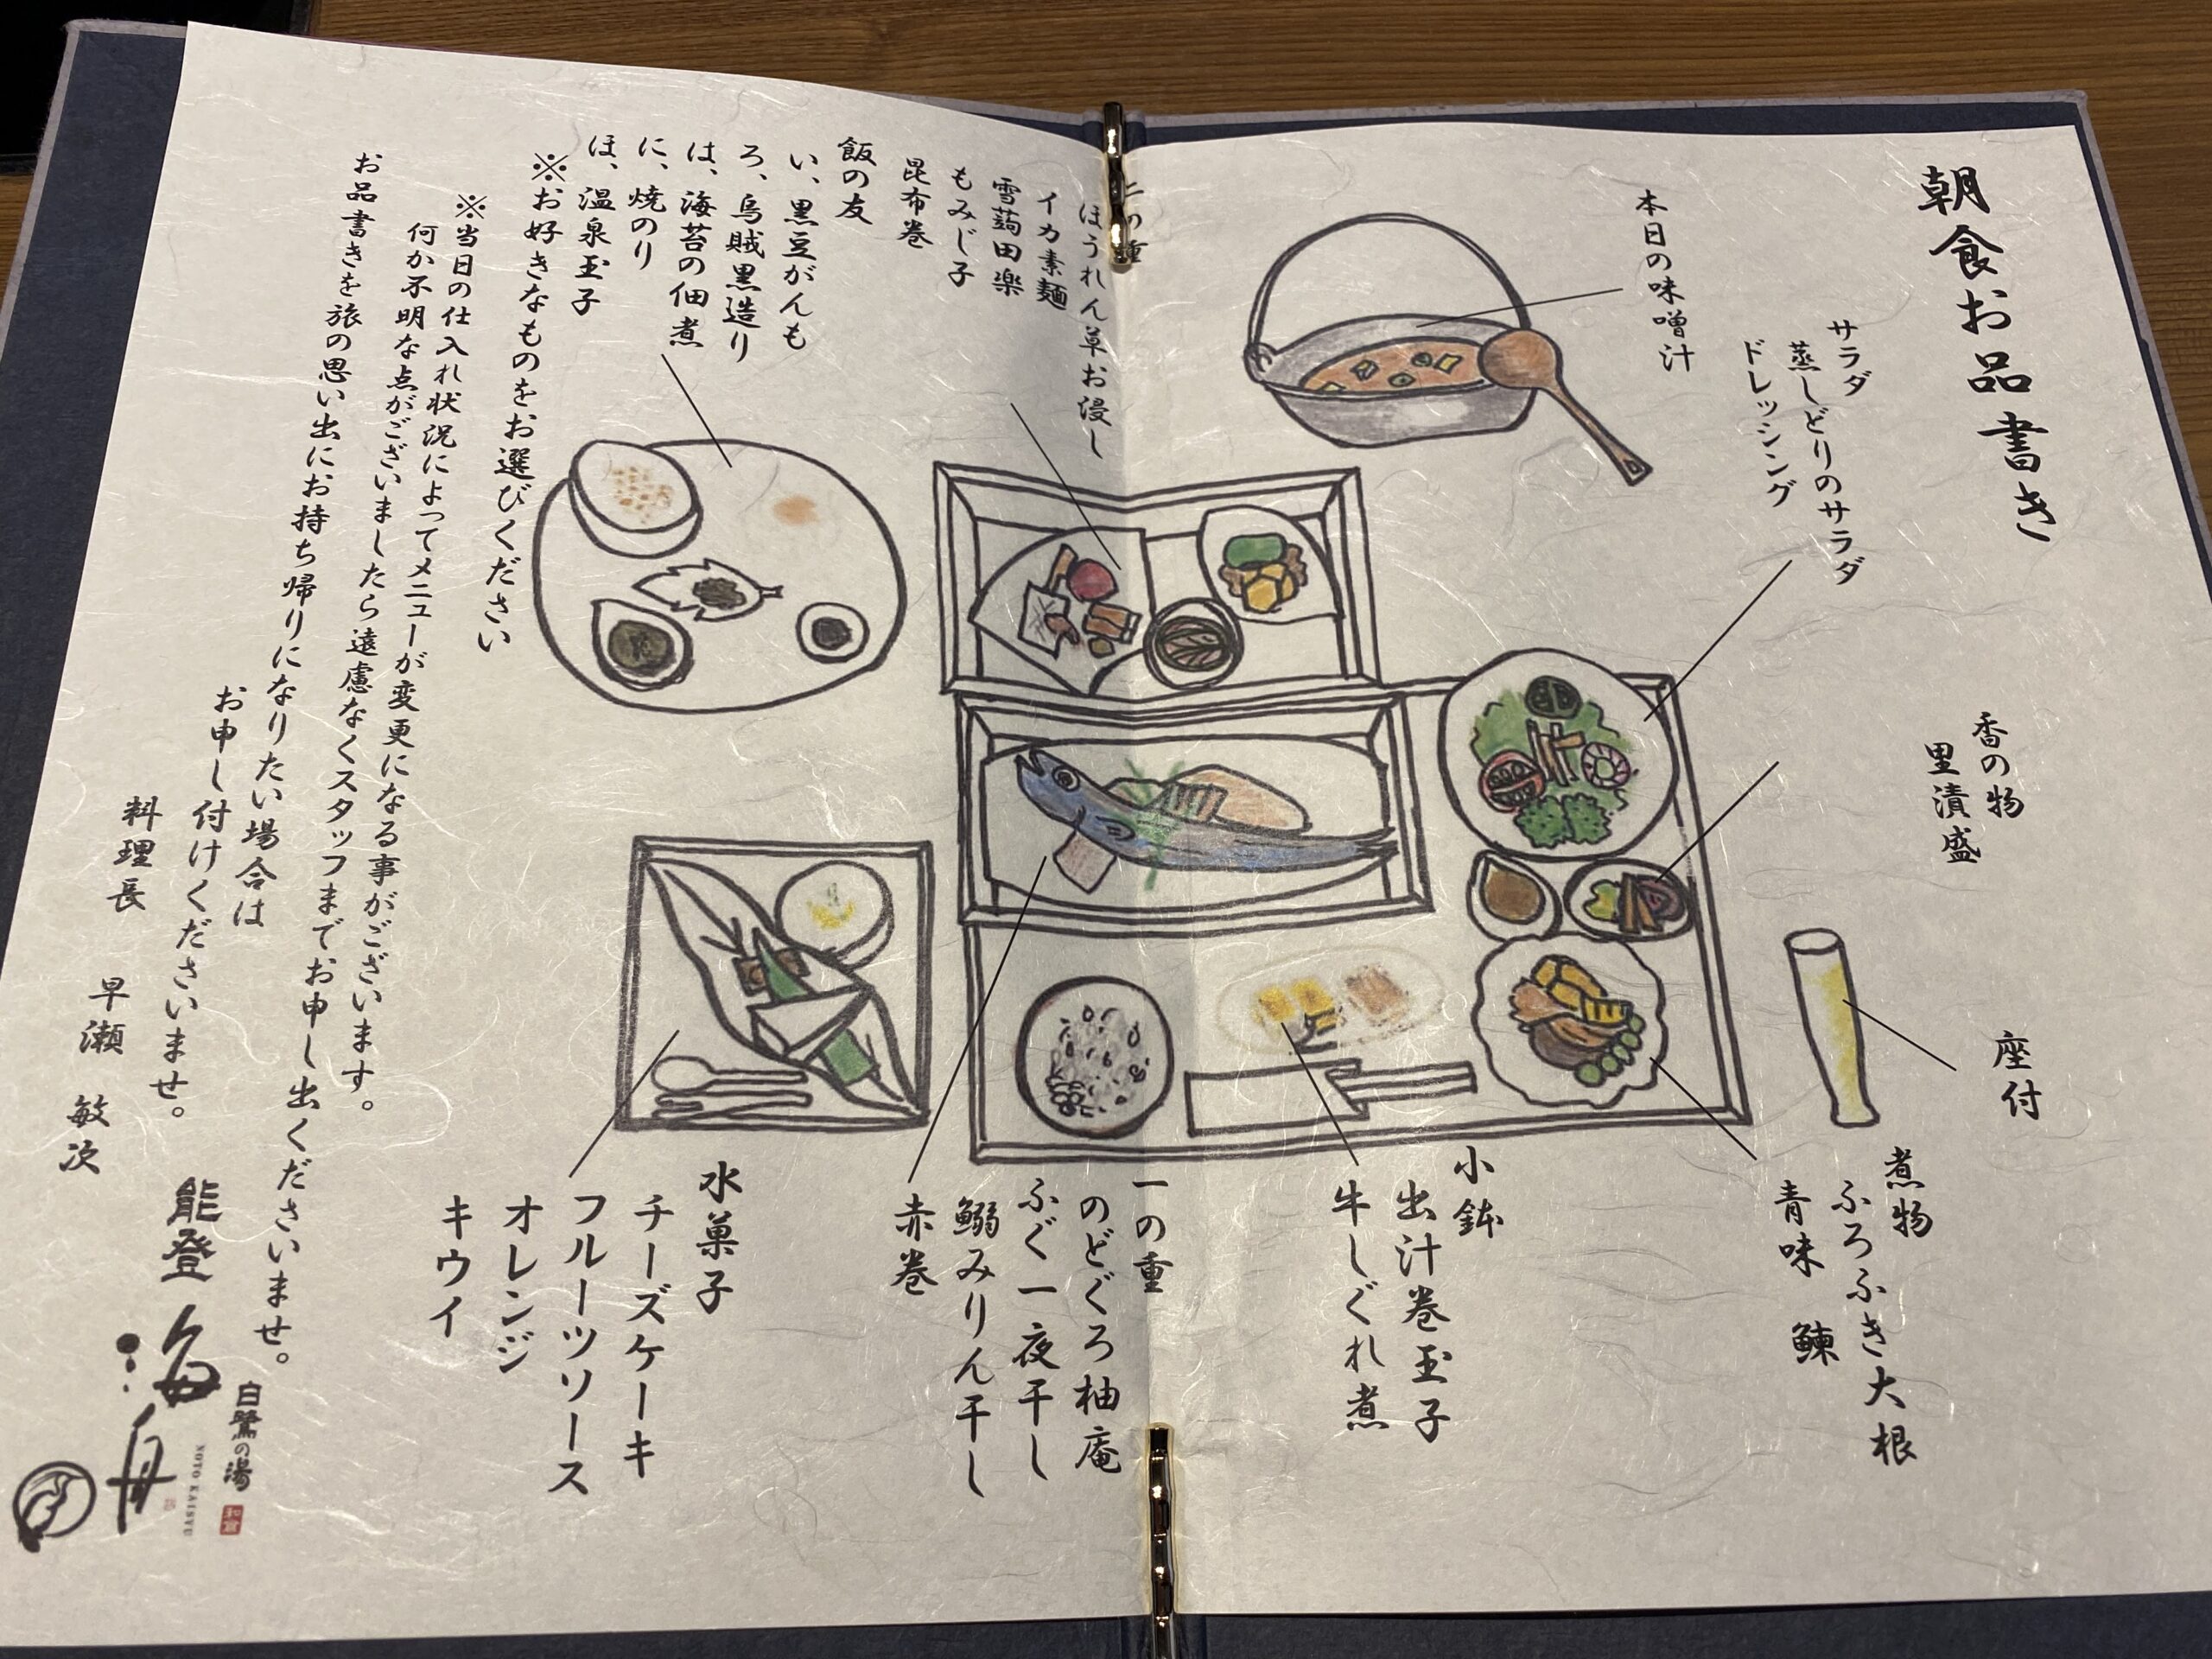 朝食お品書き
本日の味噌汁
サラダ
蒸しどりのサラダ
ドレッシング
香の物
里漬盛
座付
煮物
ふろふき大根
青味 鰊
小鉢
出汁巻玉子
牛しぐれ煮
二の重
ほうれん草お浸し
イカ素麺
雪蒟田楽
もみじ子
昆布巻
一の重
のどぐろ柚庵
ふぐ一夜干し
鰯みりん干し
赤巻
飯の友
い、黒豆がんも
ろ、烏賊黒造り
は、海苔の佃煮
に、焼のり
ほ、温泉玉子
※お好きなものをお選びください
水菓子
チーズケーキ
フルーツソース
オレンジ
キウイ
※当日の仕入れ状況によってメニューが変更になる事がございます。
何か不明な点がございましたら遠慮なくスタッフまでお申し出くださいませ。
お品書きを旅の思い出にお持ち帰りになりたい場合は
お申し付けくださいませ。
料理長 早瀬 敏次
白鷺の湯
能登 海舟
NOTO KAISYU
和倉